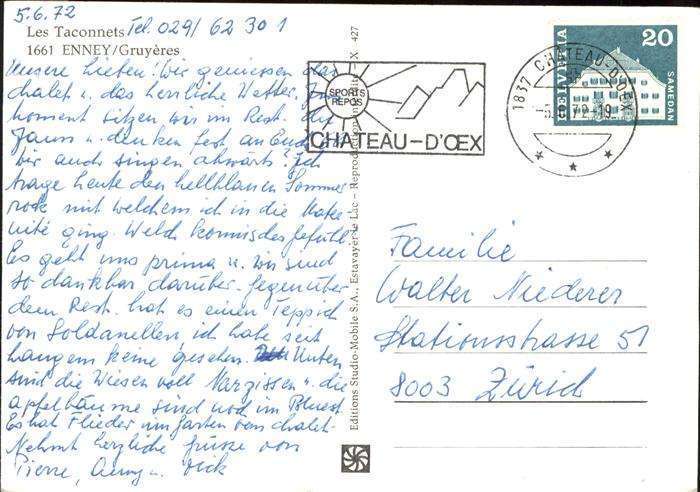 5.6.72
Tel. 029/ 62 30 1
Les Taconnets
1661 ENNEY/Gruyères
Unsere Lieben! Wir geniessen das
chalet u. das herrliche Wetter. Im
Moment sitzen wir im Rest. de
Jaun u. denken fest an Euch
wir auch singen abwärts! Ich
trage heute den hellblauen Sommer
rock mit welchem ich in die Mater
nité ging. Welch komisches Gefühl.
Es geht uns prima u. wir sind
so dankbar darüber. Gegenüber
dem Rest. hat es einen Teppich
von Soldanellen, ich habe seit
langem keine gesehen. Unten
sind die Wiesen voll Narzissen u. die
Apfelbäume sind noch im Bluest.
Es hat Flieder im Garten vom chalet.
Nehmt herzliche Grüsse von
Pierre, u. Nick
Editions Studio-Mobile S.A., Estavayer-le-Lac – Reproduction X 427
SPORTS
REPOS
CHATEAU-D'ŒX
1837 CHATEAU-D'OEX
72-19
HELVETIA
20
SAMEDAN
Familie
Walter Niederer
Stationsstrasse 51
8003 Zürich